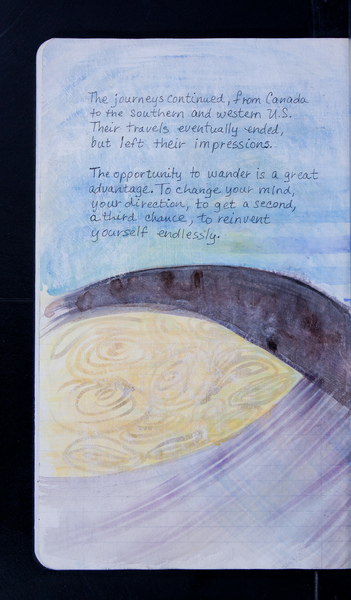 The journeys continued, from Canada
to the southern and western U.S.
Their travels eventually ended,
but left their impressions.
The opportunity to wander is a great
advantage. To change your mind,
your direction, to get a second,
a third chance, to reinvent
yourself endlessly.